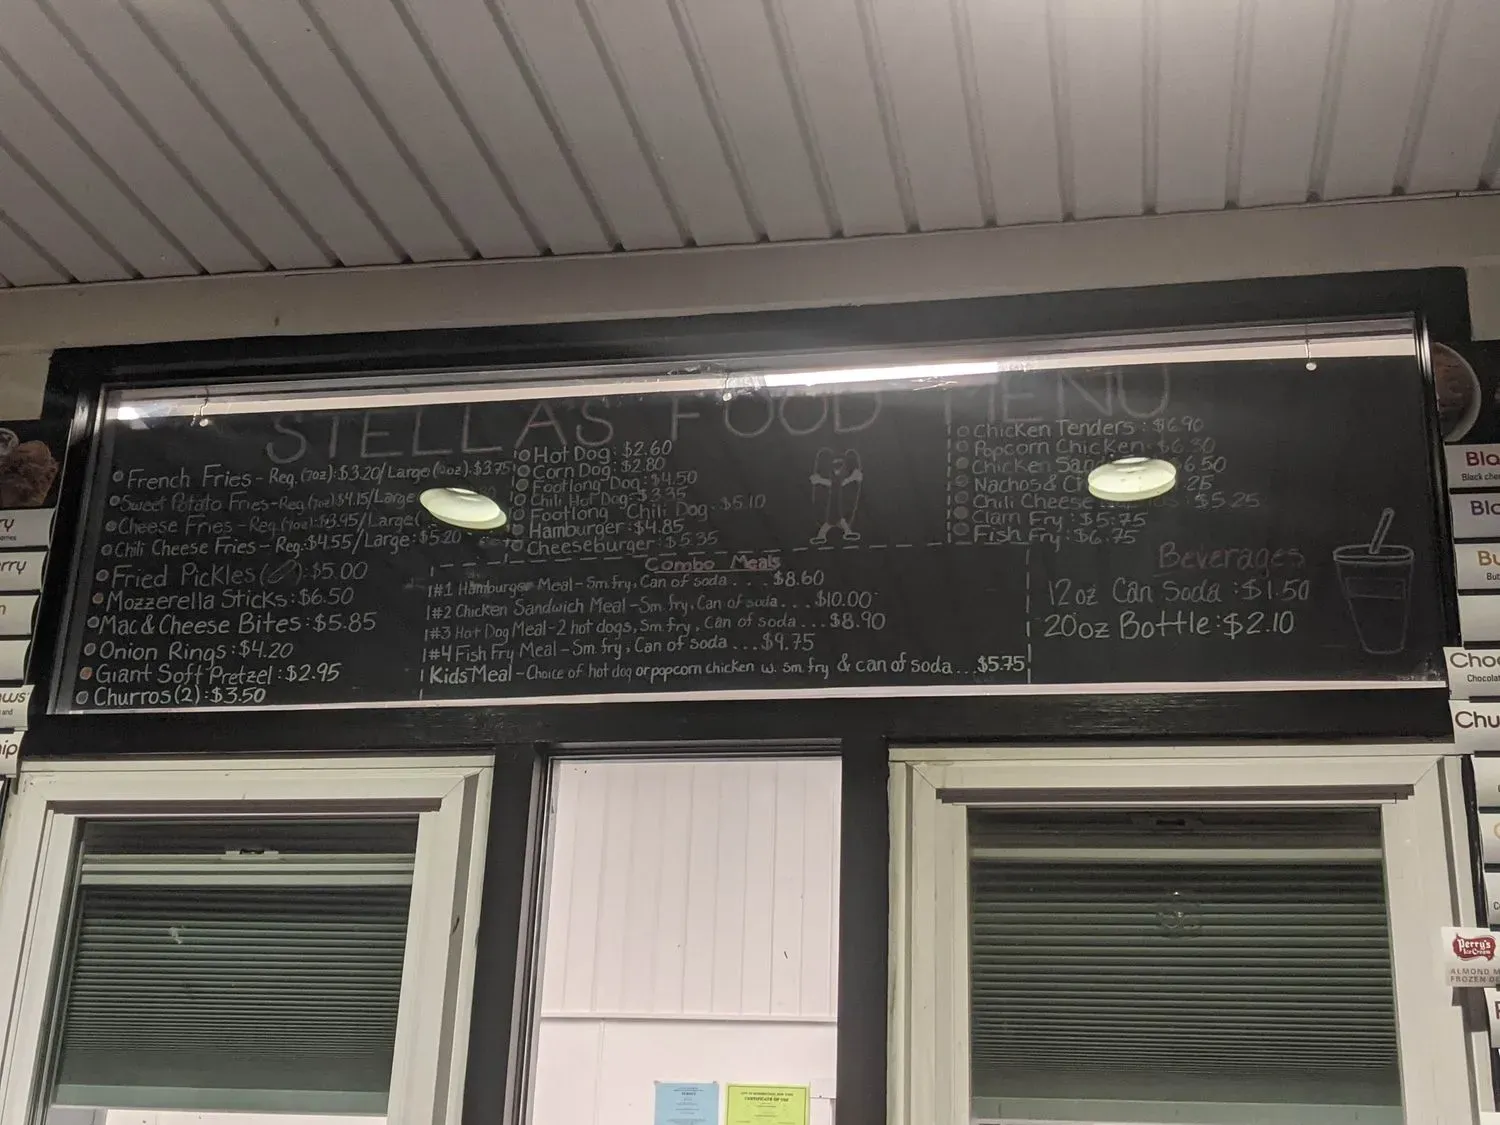 STELLAS FOOD MENU
French Fries - Reg. (7oz): $3.20/Large ( oz): $3.75
Sweet Potato Fries - Reg (7oz) $4.15/Large
Cheese Fries - Reg. (7oz): $3.95/Large(
Chili Cheese Fries - Reg: $4.55/Large: $5.20
Fried Pickles ( ): $5.00
Mozzerella Sticks: $6.50
Mac & Cheese Bites: $5.85
Onion Rings: $4.20
Giant Soft Pretzel: $2.95
Churros (2): $3.50
Hot Dog: $2.60
Corn Dog: $2.80
Footlong Dog: $4.50
Chili Hot Dog: $3.35
Footlong Chili Dog: $5.10
Hamburger: $4.85
Cheeseburger: $5.35
Chicken Tenders: $6.90
Popcorn Chicken: $6.30
Chicken San 6.50
Nachos & C 25
Chili Cheese $5.25
Clam Fry: $5.75
Fish Fry: $6.75
Combo Meals
#1 Hamburger Meal - Sm. fry, Can of soda . . . $8.60
#2 Chicken Sandwich Meal - Sm. fry, Can of soda . . . $10.00
#3 Hot Dog Meal - 2 hot dogs, Sm. fry, Can of soda . . . $8.90
#4 Fish Fry Meal - Sm. fry, Can of soda . . . $9.75
Kids Meal - Choice of hot dog or popcorn chicken w. sm fry & can of soda . . . $5.75
Beverages
12oz Can Soda: $1.50
20oz Bottle: $2.10
Perry's
Ice Cream
ALMOND
FROZEN
CERTIFICATE OF USE